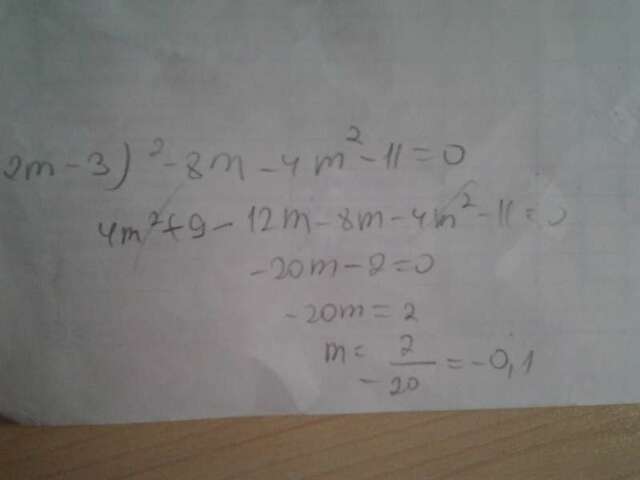 2m - 3)² - 8m - 4m² - 11 = 0
4m² + 9 - 12m - 8m - 4m² - 11 = 0
-20m - 2 = 0
-20m = 2
m = 2/-20 = -0,1